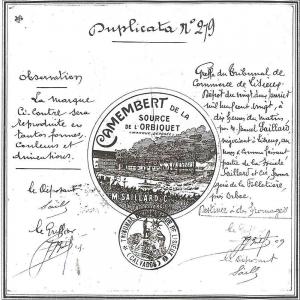 Duplicata N° 279
Observation
La marque
Ci-Contre sera
reproduite en
toutes formes,
Couleurs et
dimensions.
le Déposant
Saill
le Greffier
CAMEMBERT DE LA
SOURCE
DE L'ORBIQUET
(MARQUE DÉPOSÉE)
M. SAILLARD & Cie
TRIBUNAL DE COMMERCE DE LISIEUX
(CALVADOS)
Greffe du Tribunal de
Commerce de Lisieux
Dépôt du vingt un janvier
mil neuf cent vingt, à
dix heures du matin
par M. Marcel Saillard
négociant à Lisieux, au
nom et comme faisant
partie de la Société
Saillard et Cie
de la Pelletière,
près Orbec.
Destinée à des fromages
le Greffier
le déposant
Saill